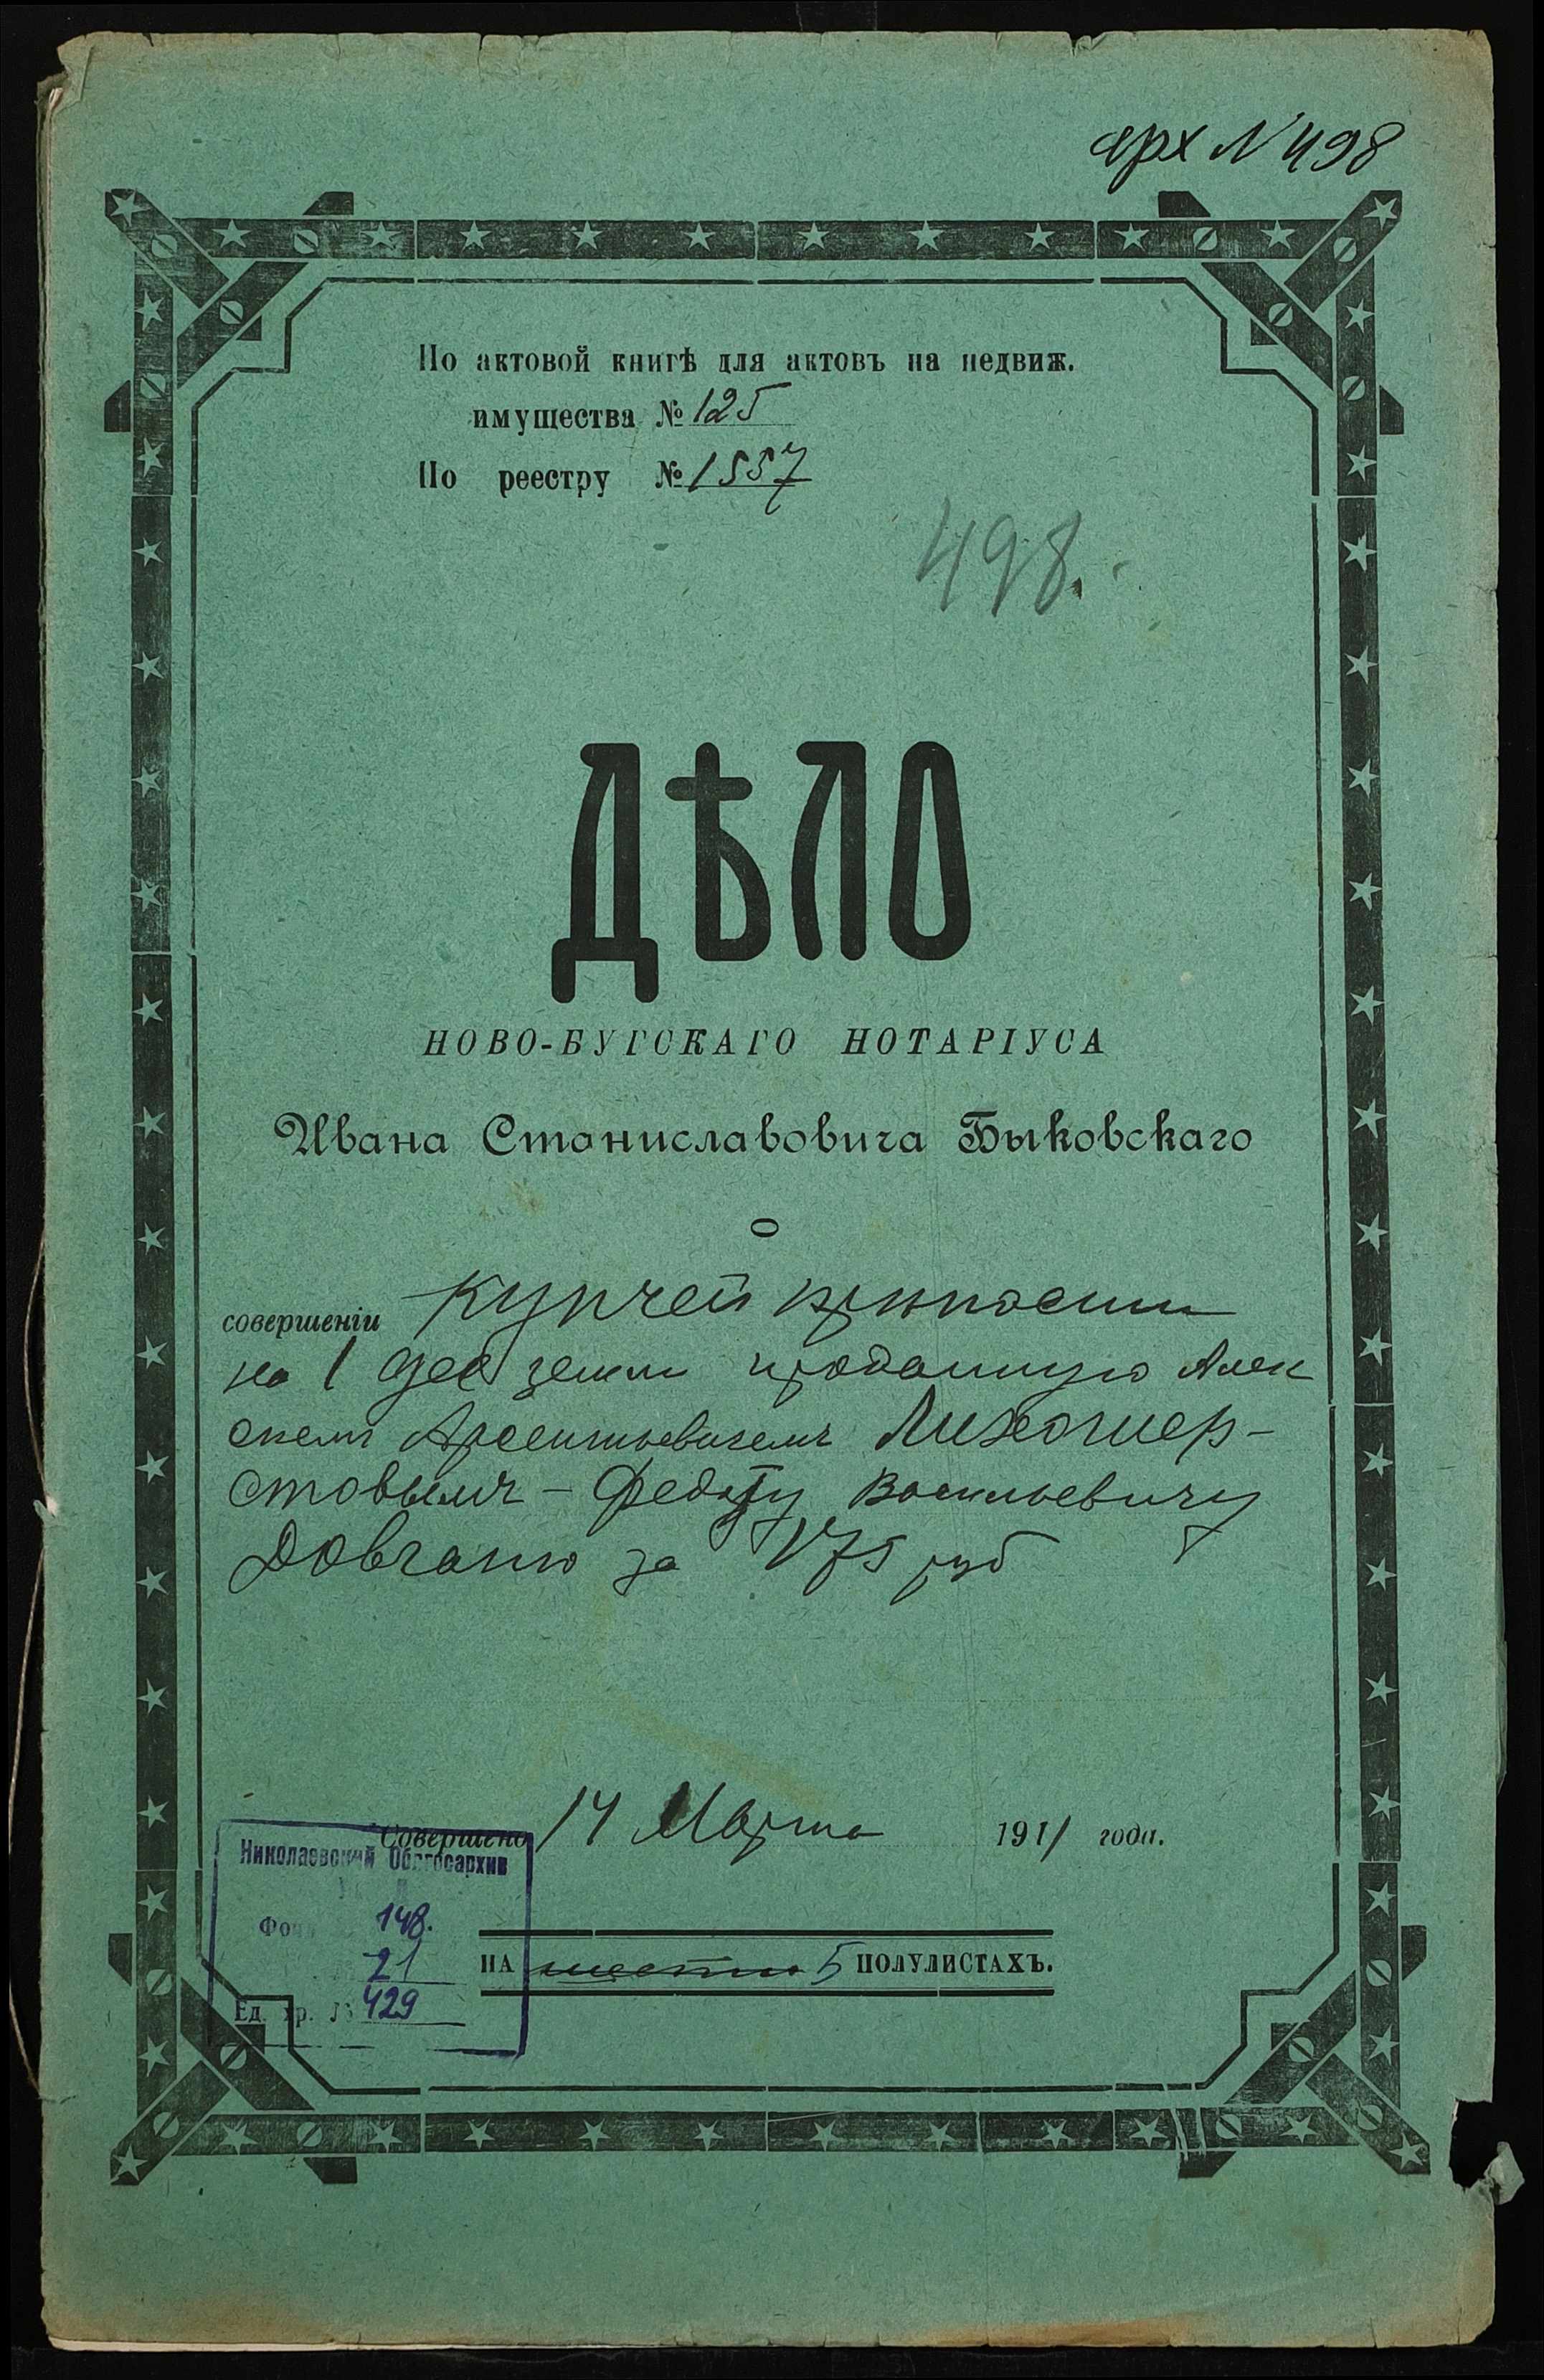 арх N 498
По актовой книгѣ для актовъ на недвиж.
имущества № 125
По реестру № 1557
498.
ДѢЛО
НОВО-БУГСКАГО НОТАРІУСА
Ивана Станиславовича Быковскаго
О
совершеніи Купчей крѣпости
на 1 дес земли проданную Алек
сѣемъ Арсентьевичемъ Лихошер-
стовымъ - Федоту Васильевичу
Довганю за 175 руб
Совершено 14 Марта 1911 года.
Николаевский Облгосархив
Фонд 148.
21
Ед. хр. № 429
НА шести 5 ПОЛУЛИСТАХЪ.